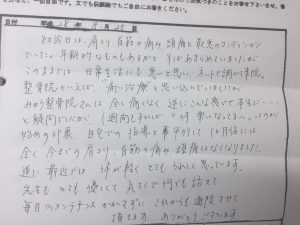 一日の方は、回復面でもご自由にお書きください。
日付 平成28年8月25日
初診日は肩こり、首筋の痛み、頭痛と最悪のコンディション
でした。年齢的なものもあるかと半ばあきらめていましたが
このままでは日常生活にも悪いと思い、ネットで調べて来院。
整骨院といえば、"痛い治療"と思い込んでいましたが
みかり整骨院さんは全く痛くなく、逆にこんな感じで本当に……
と疑問でしたが、1週間もすれば"何か楽になってる"っていうのが
始めの印象。自宅での指導も平行して10月後には
全く今までの肩こり、首筋の痛み、頭痛はなくなりました!
逆に最近では体が軽くとてもうれしく思っています。
先生もとても優しくて気さくで何でも話せて
毎月のメンテナンスかかさずに、これからも通院させて
頂きます。ありがとうございます